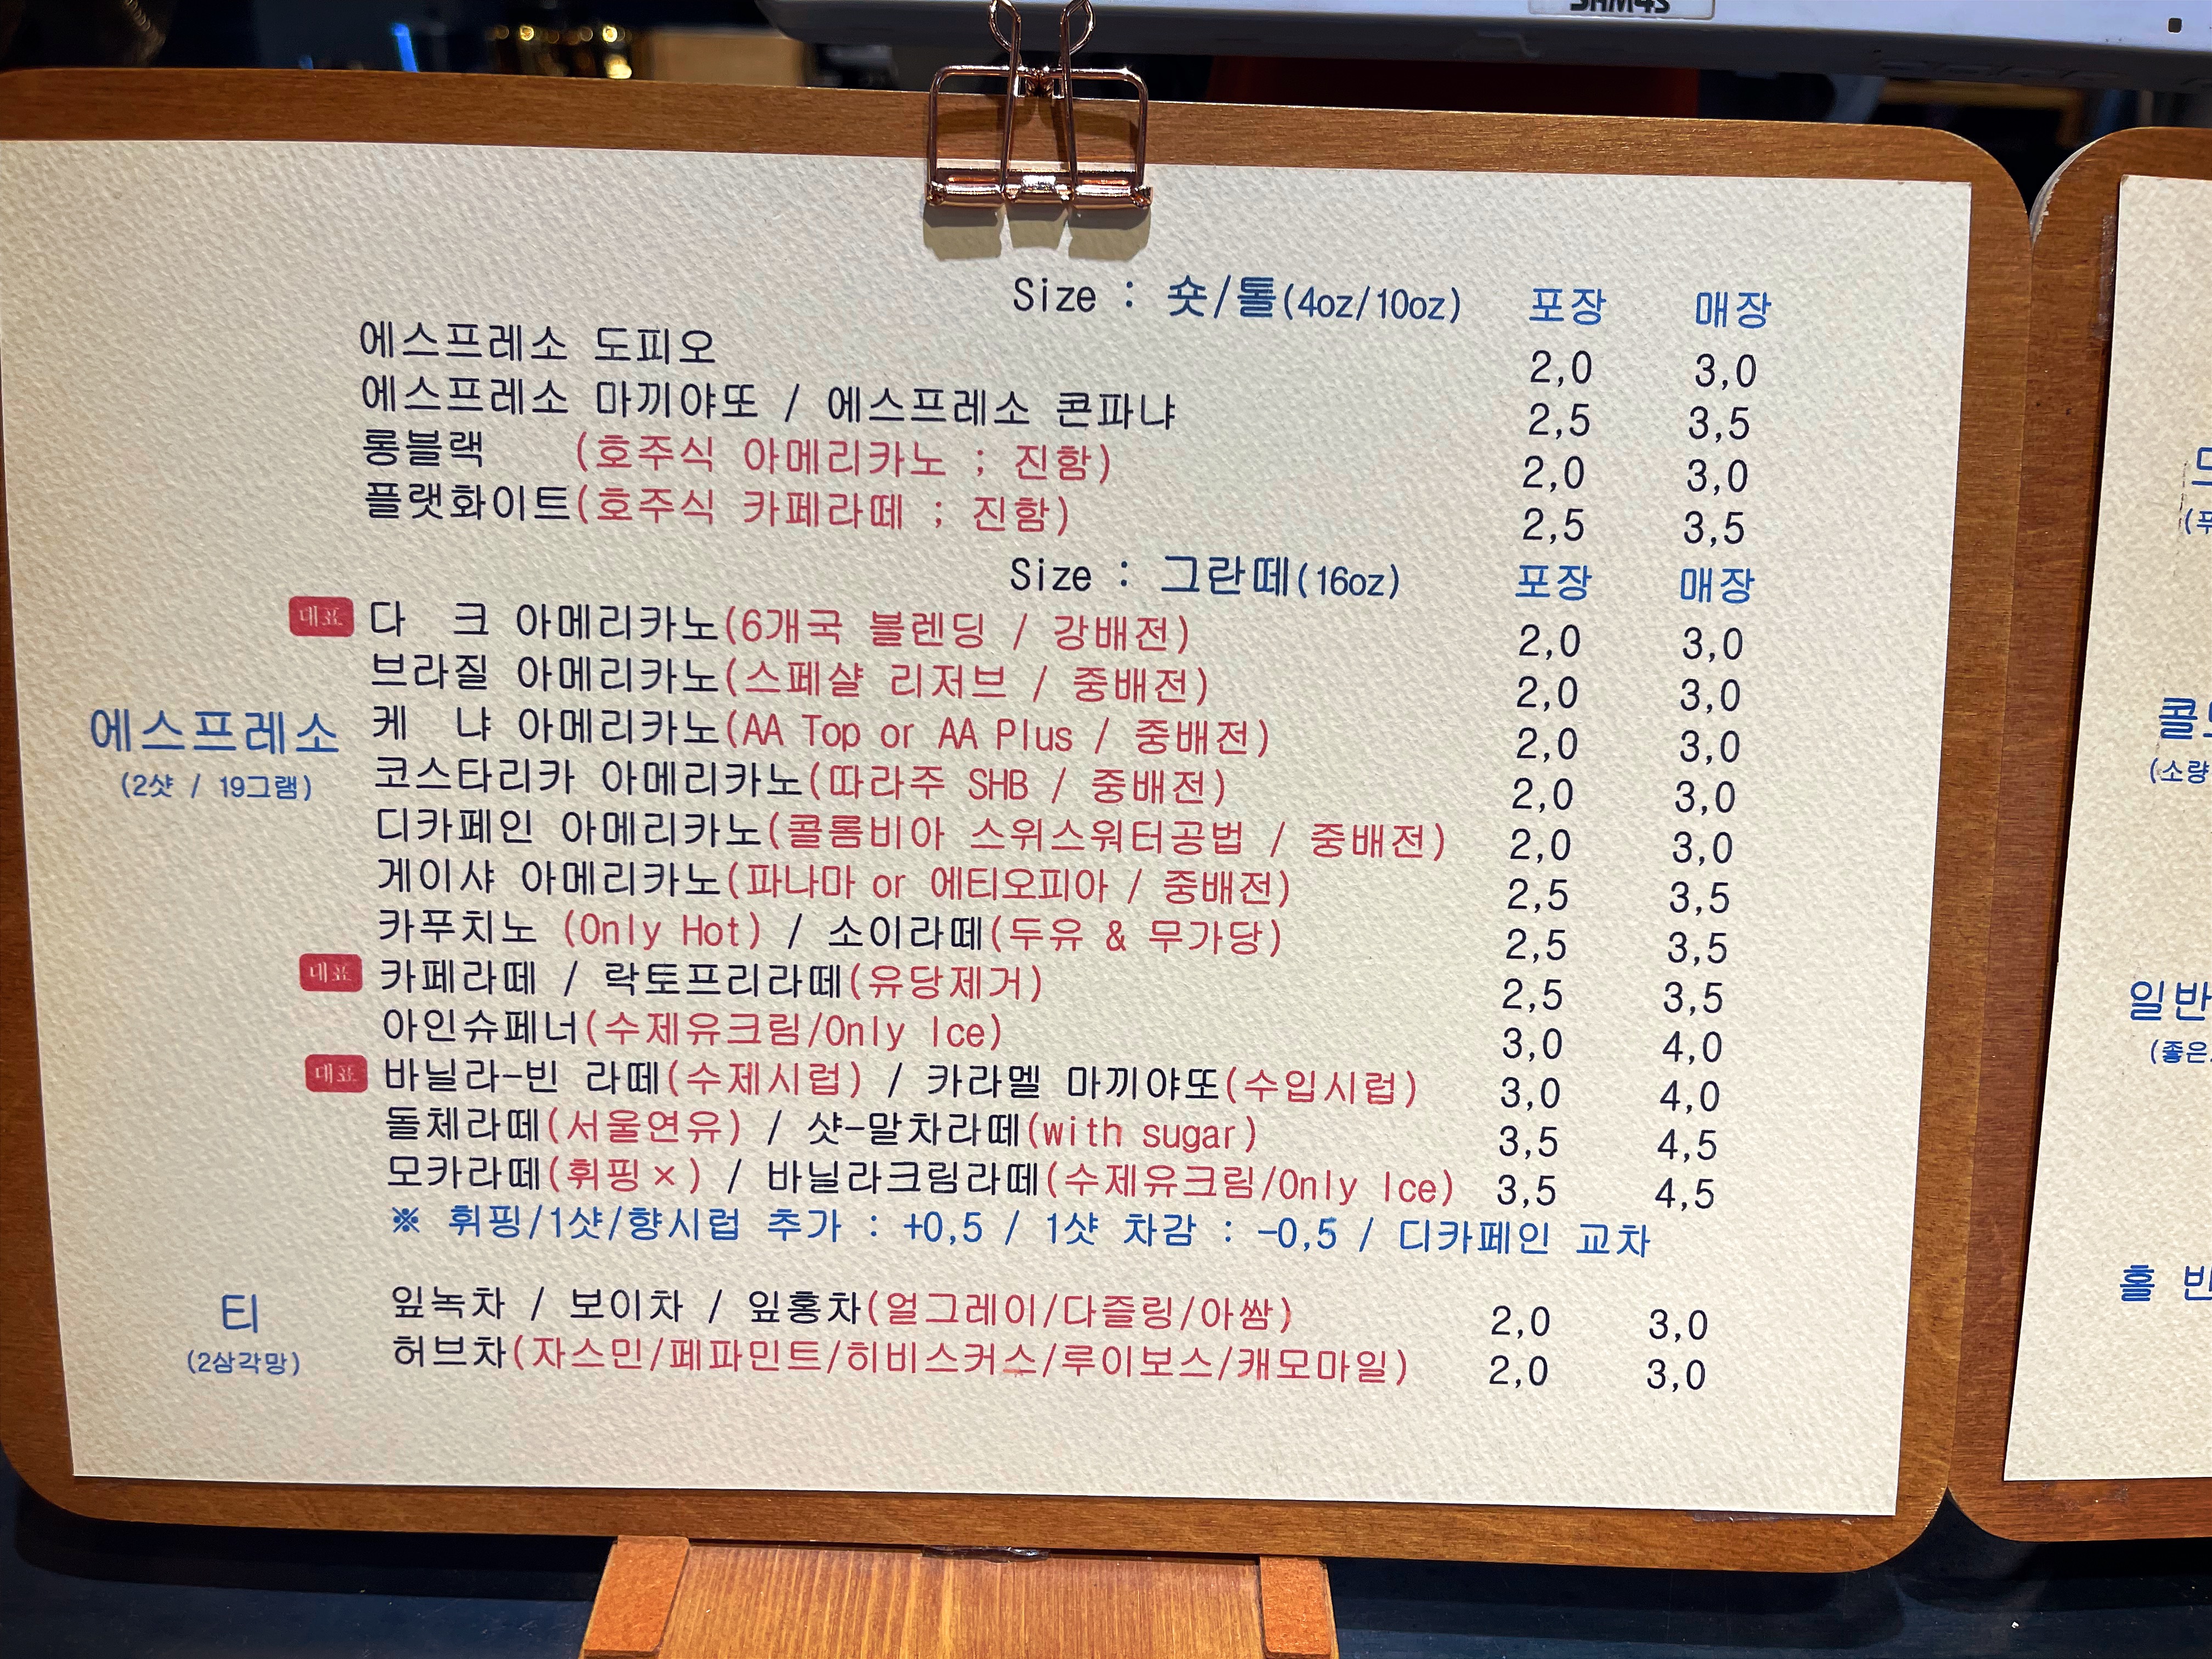 Size : 숏/톨(4oz/10oz) 포장 매장
에스프레소 도피오 2,0 3,0
에스프레소 마끼야또 / 에스프레소 콘파냐 2,5 3,5
롱블랙 (호주식 아메리카노 ; 진함) 2,0 3,0
플랫화이트(호주식 카페라떼 ; 진함) 2,5 3,5
Size : 그란떼(16oz) 포장 매장
대표 다 크 아메리카노(6개국 블렌딩 / 강배전) 2,0 3,0
브라질 아메리카노(스페샬 리저브 / 중배전) 2,0 3,0
에스프레소
(2샷 / 19그램)
케 냐 아메리카노(AA Top or AA Plus / 중배전) 2,0 3,0
코스타리카 아메리카노(따라주 SHB / 중배전) 2,0 3,0
디카페인 아메리카노(콜롬비아 스위스워터공법 / 중배전) 2,0 3,0
게이샤 아메리카노(파나마 or 에티오피아 / 중배전) 2,5 3,5
카푸치노 (Only Hot) / 소이라떼(두유 & 무가당) 2,5 3,5
대표 카페라떼 / 락토프리라떼(유당제거) 2,5 3,5
아인슈페너(수제유크림/Only Ice) 3,0 4,0
대표 바닐라-빈 라떼(수제시럽) / 카라멜 마끼야또(수입시럽) 3,0 4,0
돌체라떼(서울연유) / 샷-말차라떼(with sugar) 3,5 4,5
모카라떼(휘핑×) / 바닐라크림라떼(수제유크림/Only Ice) 3,5 4,5
※ 휘핑/1샷/향시럽 추가 : +0,5 / 1샷 차감 : -0,5 / 디카페인 교차
티
(2삼각망)
잎녹차 / 보이차 / 잎홍차(얼그레이/다즐링/아쌈) 2,0 3,0
허브차(자스민/페파민트/히비스커스/루이보스/캐모마일) 2,0 3,0
(소량
일반
(좋은
홀 빈